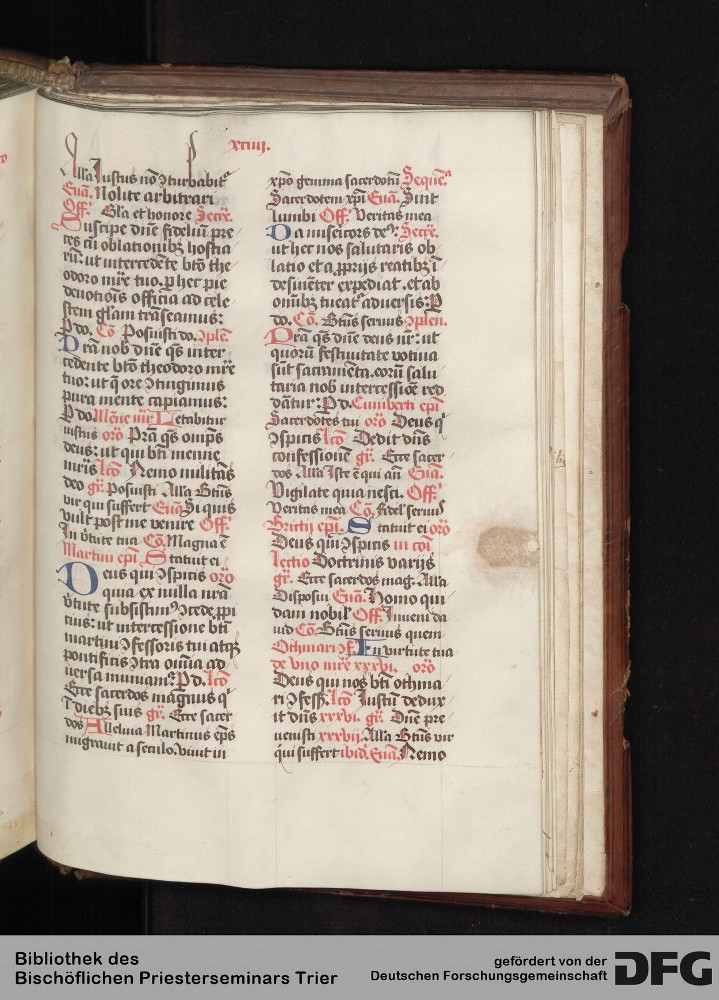 xciiii.
Alla Iustus nō ɔturbabit᷒
Euā. Nolite arbitrari
Off. Gl'a et honore Secre.
Suscipe dn̄e fideliū pre
ces cū oblationibꝫ hostia
rū: ut intercedēte btō the
odoro mr̄e tuo. ꝑ hec pie
deuotiōis officia ad cele
stem gl'am trāseamus:
P do. Cō Posuisti do. ɔplē.
Prā nob dn̄e qs inter
cedente btō theodoro mr̄e
tuo: ut q̄ ore ɔtingimus
pura mente capiamus:
P do Mēne mr̄ Letabitur
iustus orō Prā qs omps
deus: ut qui bti menne
mr̄is lcō Nemo militās
deo gr̄. Posuisti Alla Btūs
vir qui suffert Euā Si quis
vult post me venire Off.
In v̄tute tua Cō. Magna ē
Martini epī Statuit ei
Deus qui ɔspicis orō
quia ex nulla nrā
v̄tute subsistim᷒ ɔcede ꝓpi
tius: ut intercessione bti
martini ɔfessoris tui atqꝫ
pontificis ɔtra omīa ad
uersa muniam᷒: P d. lcō
Ecce sacerdos magnus q'
ī diebꝫ suis gr̄. Ecce sacer
dos Alleluia Martinus ep̄s
migrauit a seculo. viuit in
xpō gemma sacerdotū Sequē.
Sacerdotem xp̄i Euā. Sint
lumbi Off. Veritas mea
Da misericors de᷒: Secre.
ut hec nos salutaris ob
latio et a ꝓprijs reatibꝫ ī
desinēter expediat. et ab
omībꝫ tueat᷒ aduersis: P
do. Cō. Btūs seruus ɔplen.
Prā qs dn̄e deus nr̄: ut
quorū festiuitate votiua
sūt sacramēta. eorū salu
taria nob intercessiōe red
dātur: P d. Cuniberti epī
Sacerdotes tui orō Deus q'
ɔspicis lcō Dedit dn̄s
confessionē gr̄. Ecce sacer
dos Alla Iste ē qui an̄ Euā.
Vigilate quia nesci. Off.
Veritas mea Cō. fidel' seruus
Brictij epī. Statuit ei orō
Deus qui ɔspicis in cōi
lectio Doctrinis varijs
gr̄. Ecce sacerdos mag. Alla
Disposui Euā. Homo qui
dam nobil' Off. Inueni da
uid Cō. Btūs seruus quem
Othmari ɔf. In virtute tua
de vno mr̄e xxxvj. orō
Deus qui nos bti othma
ri ɔfess. lcō Iustū dedux
it dn̄s xxxvi. gr̄. Dn̄e pre
uenisti xxxvij. Alla Btūs vir
qui suffert ibid. Euā. Nemo
Bibliothek des
Bischöflichen Priesterseminars Trier
gefördert von der
Deutschen Forschungsgemeinschaft
DFG